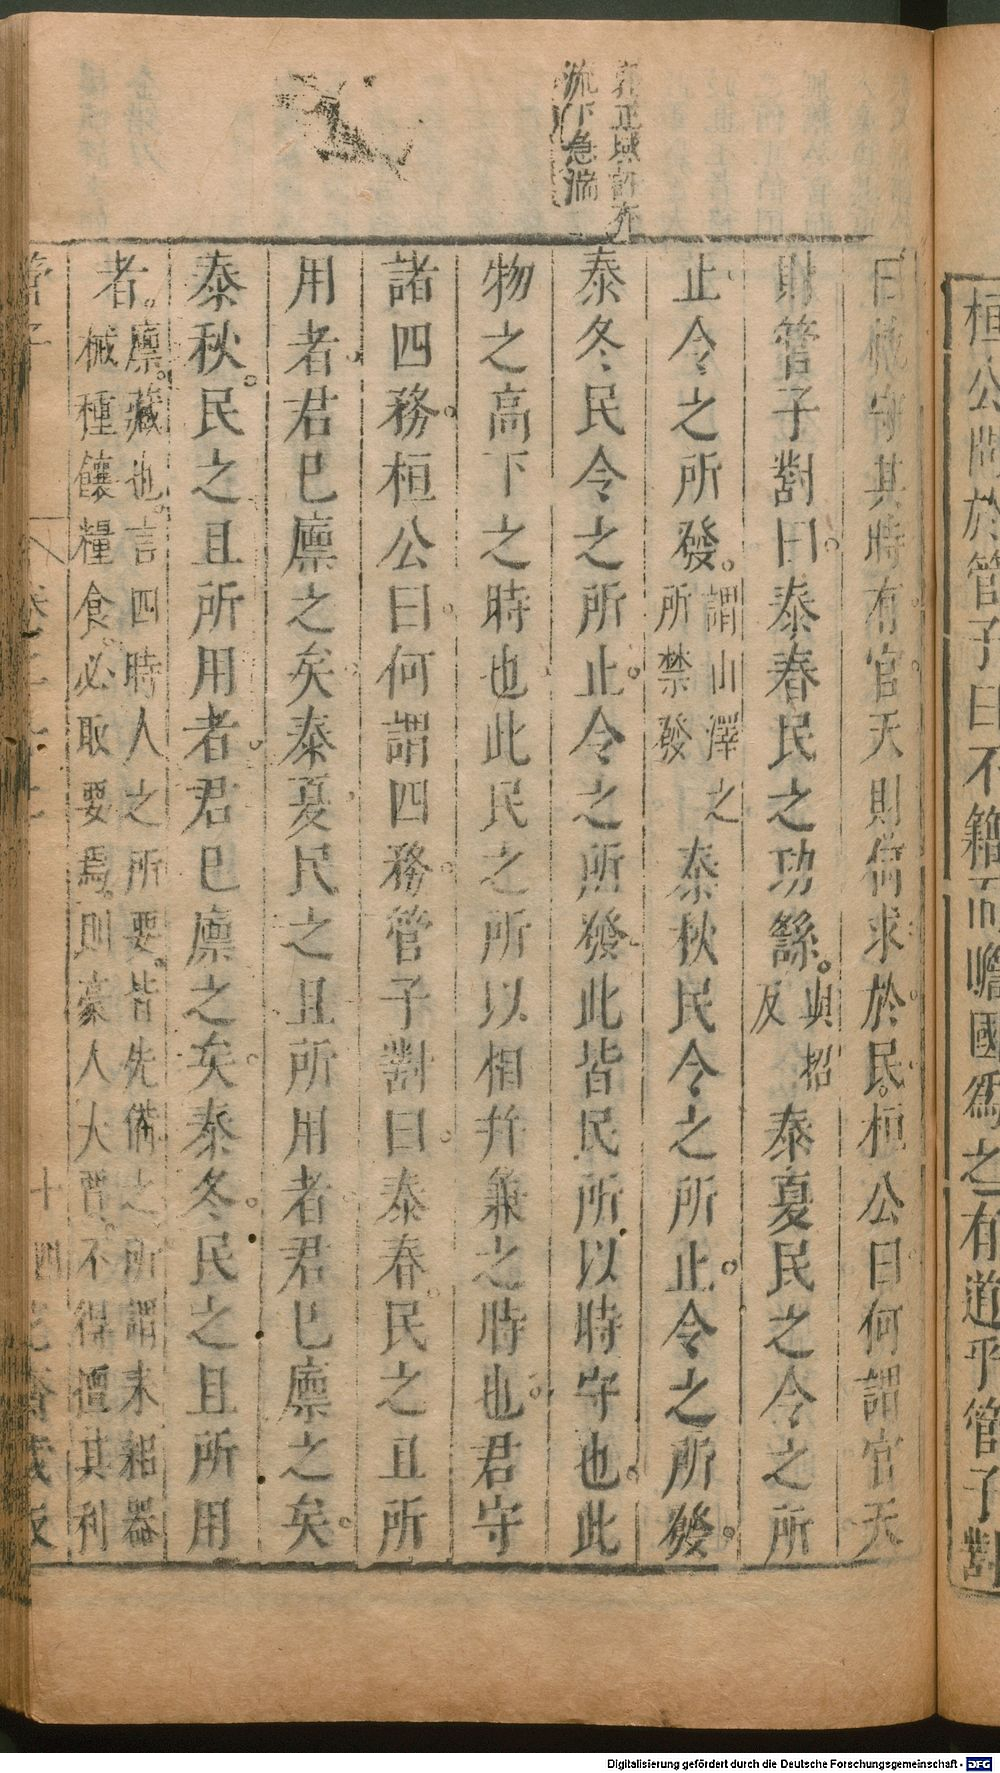 桓公問於管子曰不籍而贍國爲之有道乎管子對
郭正域評亦
流下急湍
曰軌守其時有官天財何求於民桓公曰何謂官天
財管子對曰泰春民之功繇與招反泰夏民之令之所
止令之所發謂山澤之所禁發泰秋民令之所止令之所發
泰冬民令之所止令之所發此皆民所以時守也此
物之高下之時也此民之所以相幷兼之時也君守
諸四務桓公曰何謂四務管子對曰泰春民之且所
用者君巳廩之矣泰夏民之且所用者君巳廩之矣
泰秋民之且所用者君巳廩之矣泰冬民之且所用
者廩藏也言四時人之所要皆先備之所謂耒耜器
械種饟糧食必取要焉則豪人大賈不得擅其利
管子
十四
Digitalisierung gefördert durch die Deutsche Forschungsgemeinschaft - DFG